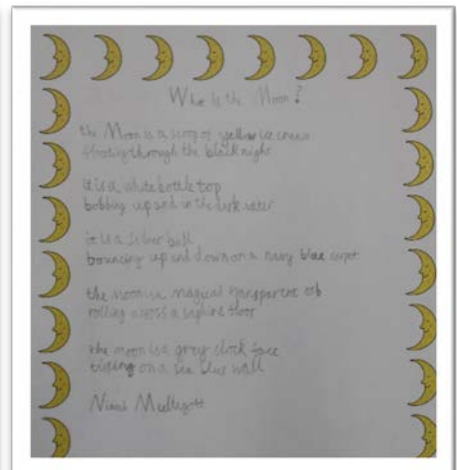 the Moon is a scoop of yellow ice cream
floating through the black night
it is a white bottle top
bobbing up and in the dark water
it is a silver ball
bouncing up and down on a navy blue carpet
the moon is a magical transparent orb
rolling across a floor
the moon is a grey clock face
on a sea blue wall